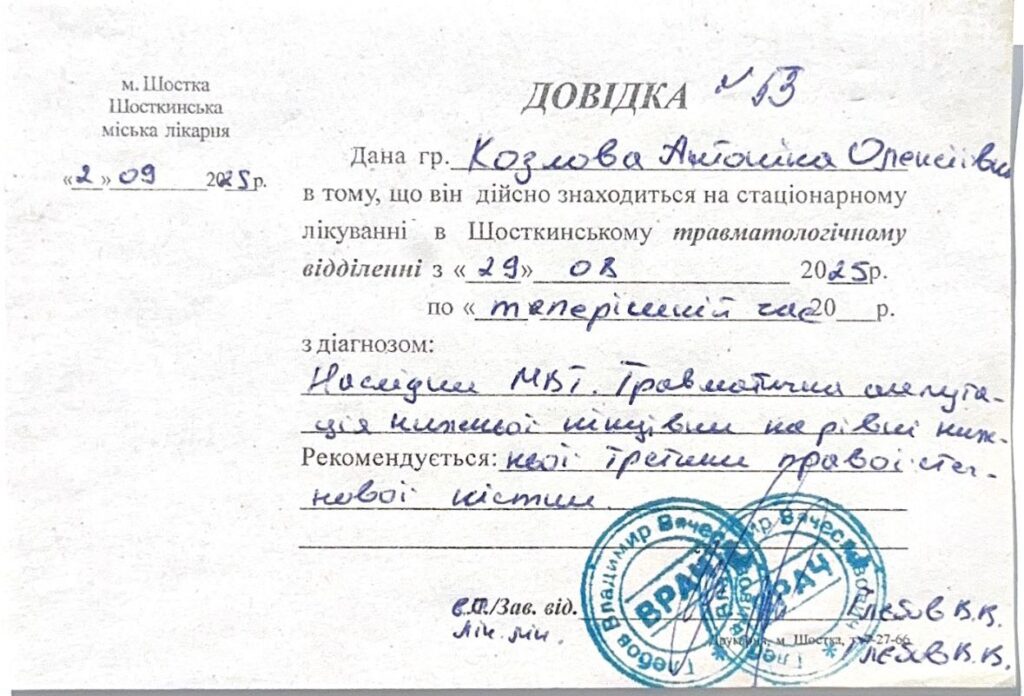 м. Шостка
Шосткинська
міська лікарня
«2» 09 2025р.
ДОВІДКА № 53
Дана гр. Козлова Антоніна Олексіївна
в тому, що він дійсно знаходиться на стаціонарному
лікуванні в Шосткинському травматологічному
відділенні з «29» 08 2025р.
по « теперішній час 20 р.
з діагнозом:
Наслідки МВТ. Травматична ампута-
ція нижньої кінцівки на рівні ниж-
Рекомендується: ньої третини правої стег-
нової кістки.
/Зав. від. Глебов В.В.
Друкарня, м. Шостка, 7-27-66
Глебов В.В.
Глебов Владимир Вячеславович
ВРАЧ
ВРАЧ